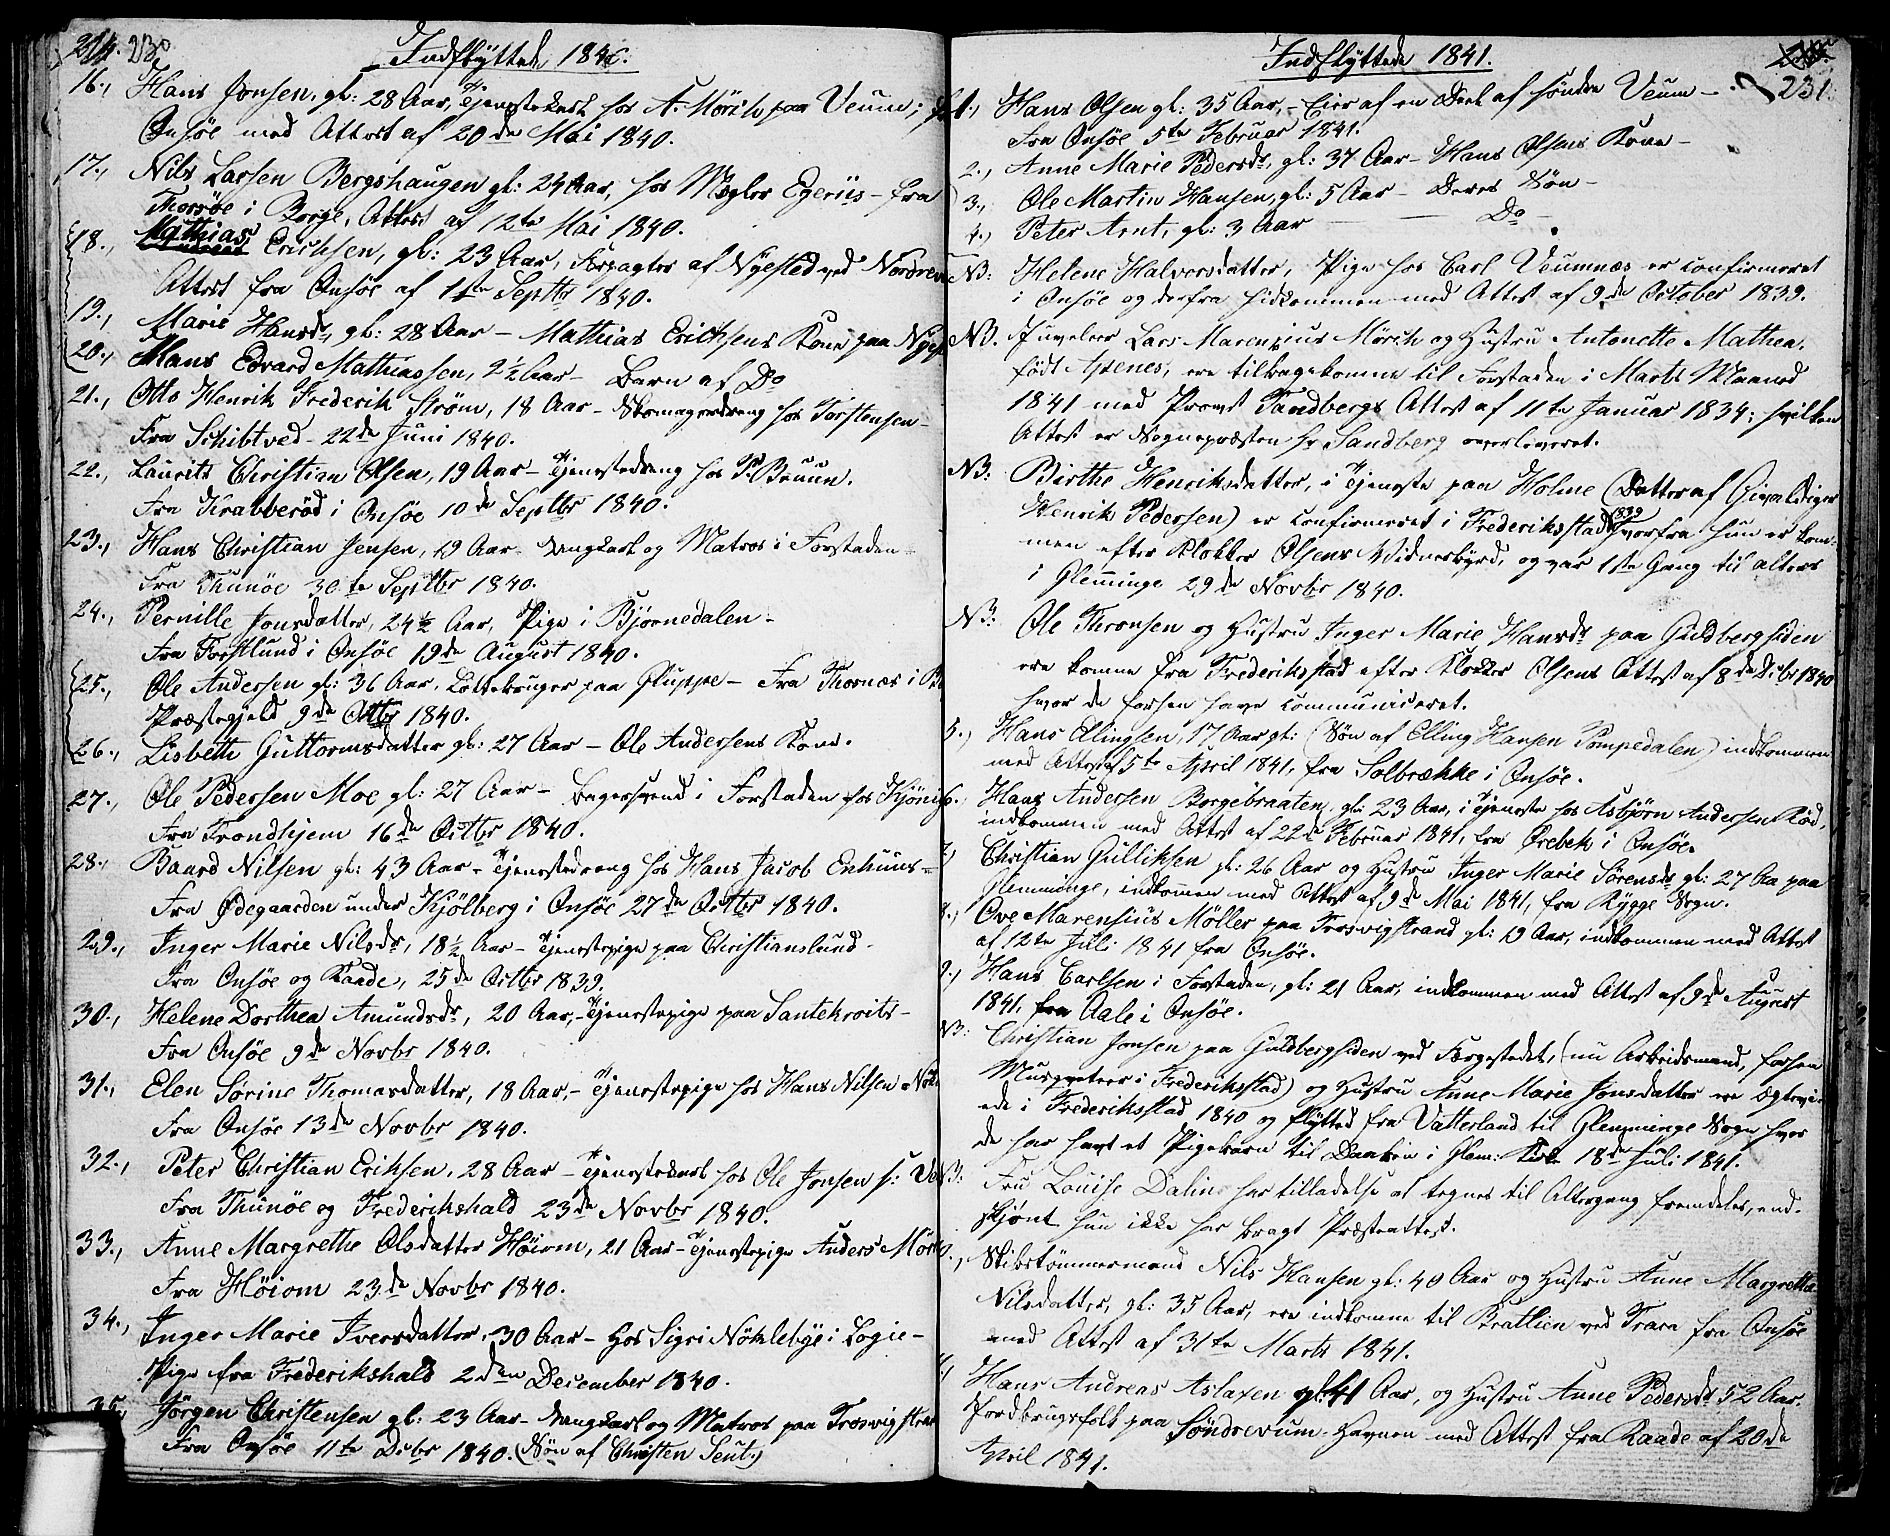 214. 230
Indflyttede 1840.
16., Hans Jonsen, gl: 28 Aar, Tjenestekarl hos A. Mörch paa Veum; f
Onsöe med Attest af 20de Mai 1840.
17., Nils Larsen Bergshaugen gl: 24 Aar, hos Mægler Egeriis - fra
Thorsöe i Borge, Attest af 12te Mai 1840.
18., Mathias Erichsen, gl: 23 Aar, Forpagter af Nyested ved Nordreve
Attest fra Onsöe af 1ste Septbr 1840.
19., Marie Hansdr, gl: 28 Aar - Mathias Erichsens Kone paa Nyest
20., Hans Edvard Mathiassen, 2½ Aar - Barn af Do
21., Otto Henrik Frederik Ström, 18 Aar - Skomagerdreng hos Torstensen -
Fra Schibtved - 22de Juni 1840.
22., Laurits Christian Olsen, 19 Aar - Tjenestedreng hos P. Bruun.
Fra Krabberöd i Onsöe 10de Septbr 1840.
23., Hans Christian Jensen, 19 Aar - Ungkarl og Matros i Forstaden -
Fra Thunöe 30te Septbr 1840.
24., Pernille Jonsdatter, 24½ Aar, Pige i Bjørnedalen -
Fra Forstlund i Onsöe 19de August 1840.
25., Ole Andersen gl: 36 Aar, Lottebruger paa Gluppe - Fra Thornæs i B
Præstegjeld 9de Octbr 1840.
26., Lisbeth Guttormsdatter gl: 27 Aar - Ole Andersens Kone.
27., Ole Pedersen Moe gl: 27 Aar - Bagersvend i Forstaden hos Kjönig
Fra Trondhjem 16de Octbr 1840.
28., Baard Nilsen gl: 43 Aar - Tjenestedreng hos Hans Jacob Enhuus -
Fra Ødegaarden under Kjölberg i Onsöe 27de Octbr 1840.
29., Inger Marie Nilsdr, 18½ Aar - Tjenestepige paa Christianslund -
Fra Onsöe og Raade, 25de Octbr 1839.
30., Helene Dorthea Amundsdr, 20 Aar, - Tjenestepige paa Santekroits -
Fra Onsöe 9de Novbr 1840.
31., Elen Sörine Thomasdatter, 18 Aar, - Tjenestepige hos Hans Nilsen
Fra Onsöe 13de Novbr 1840.
32., Peter Christian Eriksen, 28 Aar - Tjenestekarl hos Ole Jonsen
Fra Thunöe og Frederikshald 23de Novbr 1840.
33., Anne Margrethe Olsdatter Höiom, 21 Aar - Tjenestepige Anders Mör
Fra Höiom 23de Novbr 1840.
34., Inger Marie Iversdatter, 30 Aar - hos Sigri Nöklebye i Logie -
Pige fra Frederikshald 2den December 1840.
35., Jörgen Christensen gl: 23 Aar - Ungkarl og Matros paa Trosvigstran
Fra Onsöe 11te Decbr 1840. (Sön af Christen Seut.)
Indflyttede 1841.
231.
1., Hans Olsen gl: 35 Aar, - Eier af en Deel af söndre Veum -
Fra Onsöe 5te Februar 1841.
2., Anne Marie Pedersdr, gl: 37 Aar - Hans Olsens Kone -
3., Ole Martin Hansen, gl: 5 Aar - Deres Sön -
4., Peter Arnt, gl: 3 Aar - Do -
NB: Helene Halvorsdatter, Pige hos Carl Veumnæs er confirmeret
i Onsöe og derfra hidkommen med Attest af 9de October 1839.
NB. Juveleer Lars Marenzius Mörch og Hustru Antonette Mathea,
født Apenes, ere tilbagekomne til Forstaden i Marts Maaned
1841 med Provst Tandbergs Attest af 11te Januar 1834; hvilken
Attest er Sognepræsten hr Sandberg overleveret.
NB: Birthe Henriksdatter, i Tjeneste paa Holme (Datter af Givaldiger
Henrik Pedersen) er confirmeret i Frederiksstad 1839 hvorfra hun er kom-
men efter Klokker Olsens Vidnesbyrd, og var 1ste Gang til alters
i Glemminge 29de Novbr 1840.
NB: Ole Thronsen og Hustru Inger Marie Hansdr paa Guldbergsiden
ere komne fra Frederiksstad efter Klokker Olsens Attest af 8de Decbr 1840
hvor de forhen have communiceret.
5., Hans Ellingsen, 17 Aar gl: (Sön af Elling Hansen Pompedalen) indkommen
med Attest af 5te April 1841, fra Solbrække i Onsöe.
Hans Andersen Borgebraaten, gl: 23 Aar, i Tjeneste hos Asbjörn Andersen Röd,
indkommen med Attest af 22de Februar 1841, fra Ørebek i Onsöe.
7., Christian Gulliksen gl: 26 Aar og Hustru Inger Marie Sörensdr gl: 27 Aa paa
Glemminge, indkommen med Attest af 9de Mai 1841, fra Rygge Sogn.
8., Ove Marensius Möller paa Trosvigstrand gl: 19 Aar, indkommen med Attest
af 12te Juli 1841 fra Onsöe.
9., Hans Carlsen i Forstaden, gl: 21 Aar, indkommen med Attest af 9de August
1841, fra Aale i Onsöe.
NB: Christian Jonsen paa Guldbergsiden ved Færgestedet, (nu Arbeidsmand, forhen
Musqveteer i Frederiksstad) og Hustru Anne Marie Jonsdatter ere ægtevi-
ede i Frederiksstad 1840 og flytted fra Vatterland til Glemminge Sogn hvor
de har havt et Pigebarn til Daaben i Glem: Kirke 18de Juli 1841.
NB: Fru Louise Dalin har tilladelse at tegnes til Altergang fremdeles, end-
skjönt hun ikke har bragt Præsteattest.
Skibstömmermand Nils Hansen gl: 40 Aar og Hustru Anne Margrethe
Nilsdatter, gl: 35 Aar, ere indkomne til Brattlien ved Trara fra Onsöe
med Attest af 31te Marts 1841.
Hans Andreas Aslaxen gl: 41 Aar, og Hustru Anne Pedersdr 52 Aar.
Jordbrugsfolk paa Söndrevum-Havnen med Attest fra Raade af 20de
April 1841.